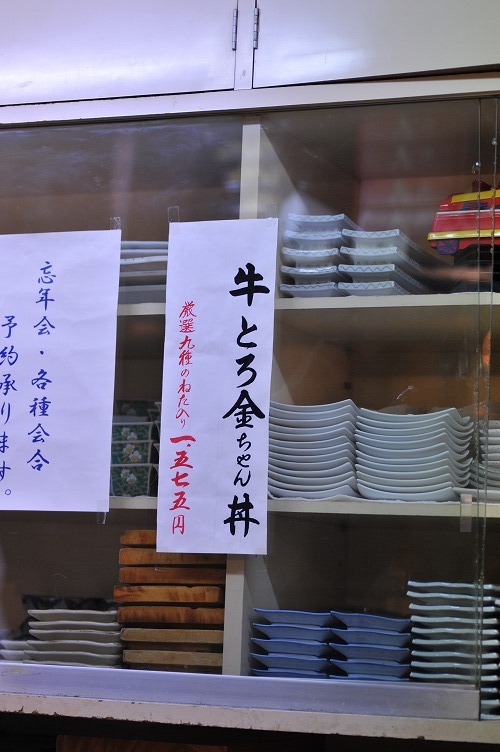 牛とろ金ちゃん丼
厳選九種のねた入り 一、五七五円
忘年会・各種会合
予約承ります。